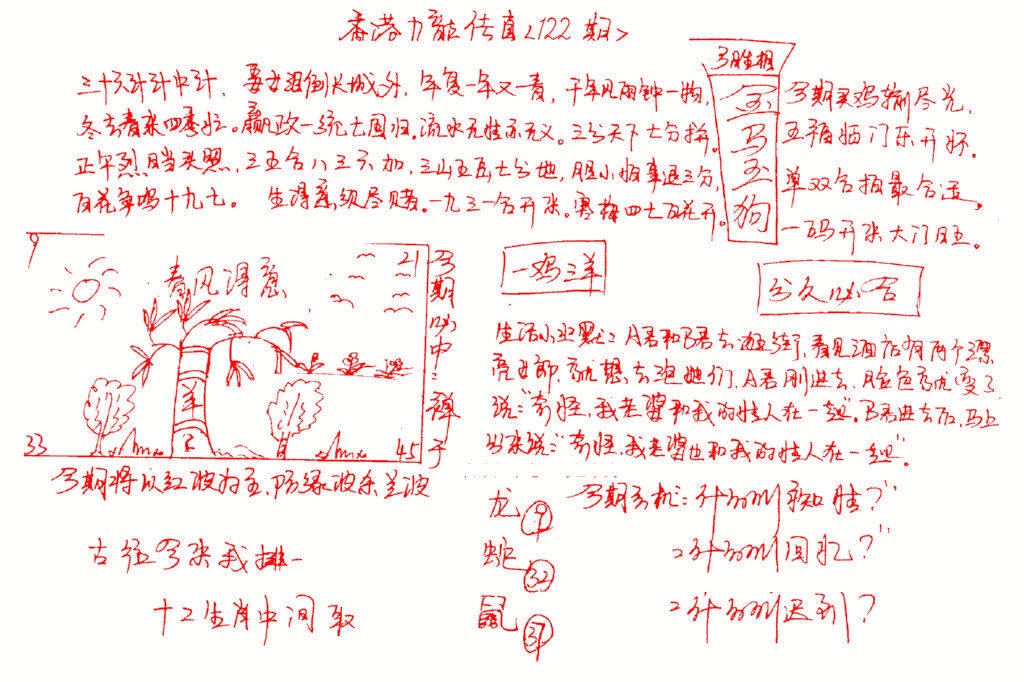 香港九龍传真<122期>
三十六计计中计，姜女泪倒长城外，年复一年又一春，千年见两钟一物，
冬去春来四季忙。嬴政一统七国归。流水无情亦无义。三分天下七分拼。
正午烈日当头照，三五合八三六加，三山五岳七分地，胆小怕事退三分，
百花争鸣十九七。 生得意须尽赌。一九三一合开张。寒梅四七百花开。
今期买鸡输尽光，
五福临门乐开怀。
单双合拍最合适，
一码开来大门旺。
金
马
玉
狗
9
21
春风得意
羊
33
45
今期必中:弹子
今期将以红波为主，防绿波杀兰波
一鸡三羊
分久必合
生活小幽默: A君和B君去逛街，看见酒店有两个漂
亮女郎，就想去泡她们，A君刚进去，脸色就变了
说:"奇怪，我老婆和我的情人在一起"。B君进去后，马上
出来说:"奇怪，我老婆也和我的情人在一起"。
龙 9
蛇 32
鼠 37
今期玄机:
回忆?"
迟到?
古往今来我排一
十二生肖中间取